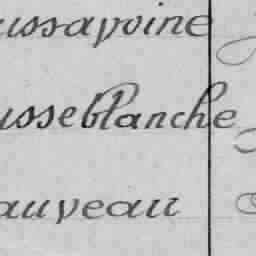 ussavoine
usseblanche
auveau